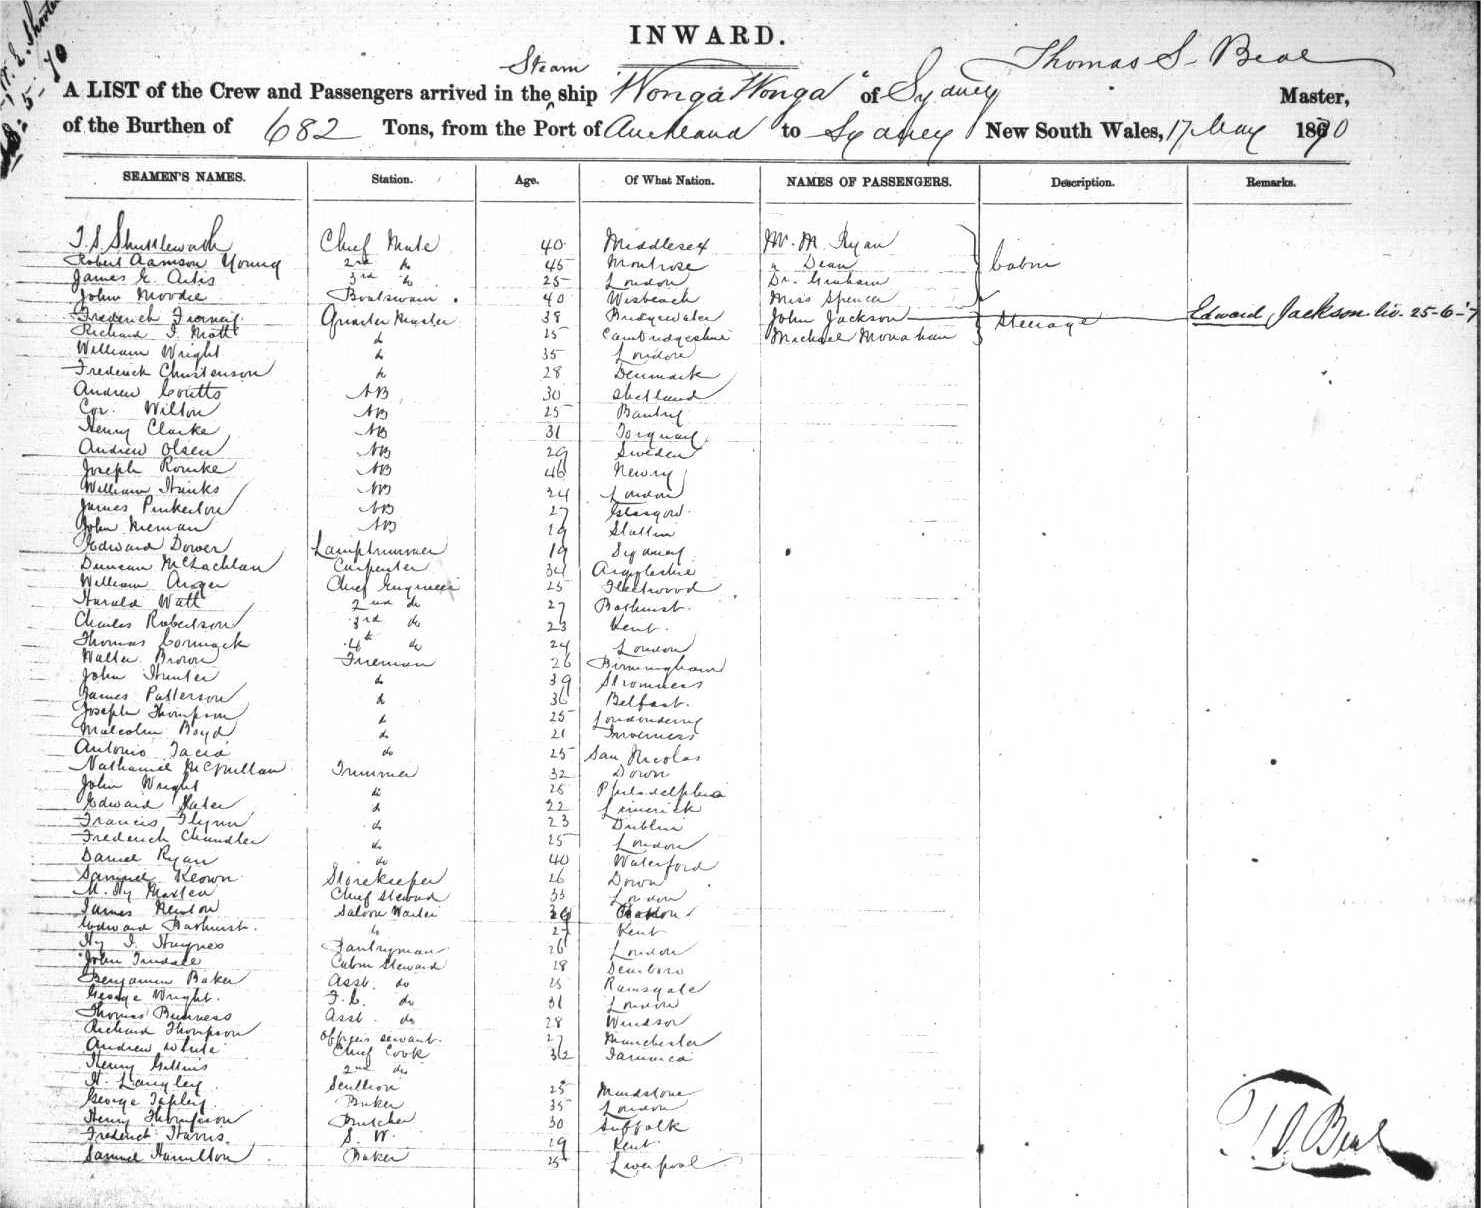 INWARD.
Steam
Thomas S. Beal
A LIST of the Crew and Passengers arrived in the ship "Wonga Wonga" of Sydney Master,
of the Burthen of 682 Tons, from the Port of Auckland to Sydney New South Wales, 17 May 1870
SEAMEN'S NAMES. Station. Age. Of What Nation. NAMES OF PASSENGERS. Description. Remarks.
T. S. Shuttlewash Chief Mate 40 Middlesex Mr. M. Ryan
Robert Aamson Young 2nd do 45 Montrose " Dean Cabin
James E. Artis 3rd do 25 London Dr. Graham
John Moodie Boatswain 40 Wisbeach Miss Spencer
Frederick 38 Bridgewater John Jackson Steerage Edward Jackson liv. 25-6-7
Richard I. Mott Quarter Master 25 Cambridgeshire Michael Monahan
William Wright do 35 London
Frederick Christenson do 28 Denmark
Andrew Coutts AB 30 Shetland
Cor. Wilton AB 25 Bantry
Henry Clarke AB 31 Torquay
Andrew Olsen AB 29 Sweden
Joseph Rourke AB 46 Newry
William Hanks AB 24 London
James Pinkerton AB 27 Glasgow
John Nieman AB 19 Stattin
Edward Dower Lamptrimmer 19 Sydney
Duncan McLachlan Carpenter 34 Argyleshire
William Chief Engineer 25 Fleetwood
Harald Watt 2nd do 27 Bathurst
Charles Robertson 3rd do 23 Kent
Thomas Cormack 4th do 24 London
Walter Brown Fireman 26 Birmingham
John Hunter do 39 Stromness
James Patterson do 36 Belfast
Joseph Thompson do 25 Londonderry
Malcolm Boyd do 21 Inverness
Antonio do 25 San Nicolas
Nathaniel McMillan Trimmer 32 Down
John Wright do 25 Philadelphia
Edward Slater do 22 Limerick
Francis Flynn do 23 Dublin
Frederick Chandler do 25 London
Daniel Ryan do 40 Waterford
Samuel Keown Storekeeper 26 Down
M. Hy Chief Steward 33 London
James Newton Saloon Waiter 29
Edward Bathurst do 27 Kent
Hy I. Haynes Pantryman 26 London
John Tindale Cabin Steward 28
Benjamin Baker Asst. do 25 Ramsgate
George Wright F. C. do 31 London
Thomas Asst. do 28 Windsor
Richard Thompson Officers servant 27 Manchester
Andrew White Chief Cook 32 Jamaica
Henry Gittins 2nd do
H. Langley Scullion 25 Maidstone
George Tapley Baker 35 London
Henry Thompson Butcher 30 Suffolk
Frederick Harris S. W. 19 Kent
Samuel Hamilton Baker 25 Liverpool
T. S. Beal